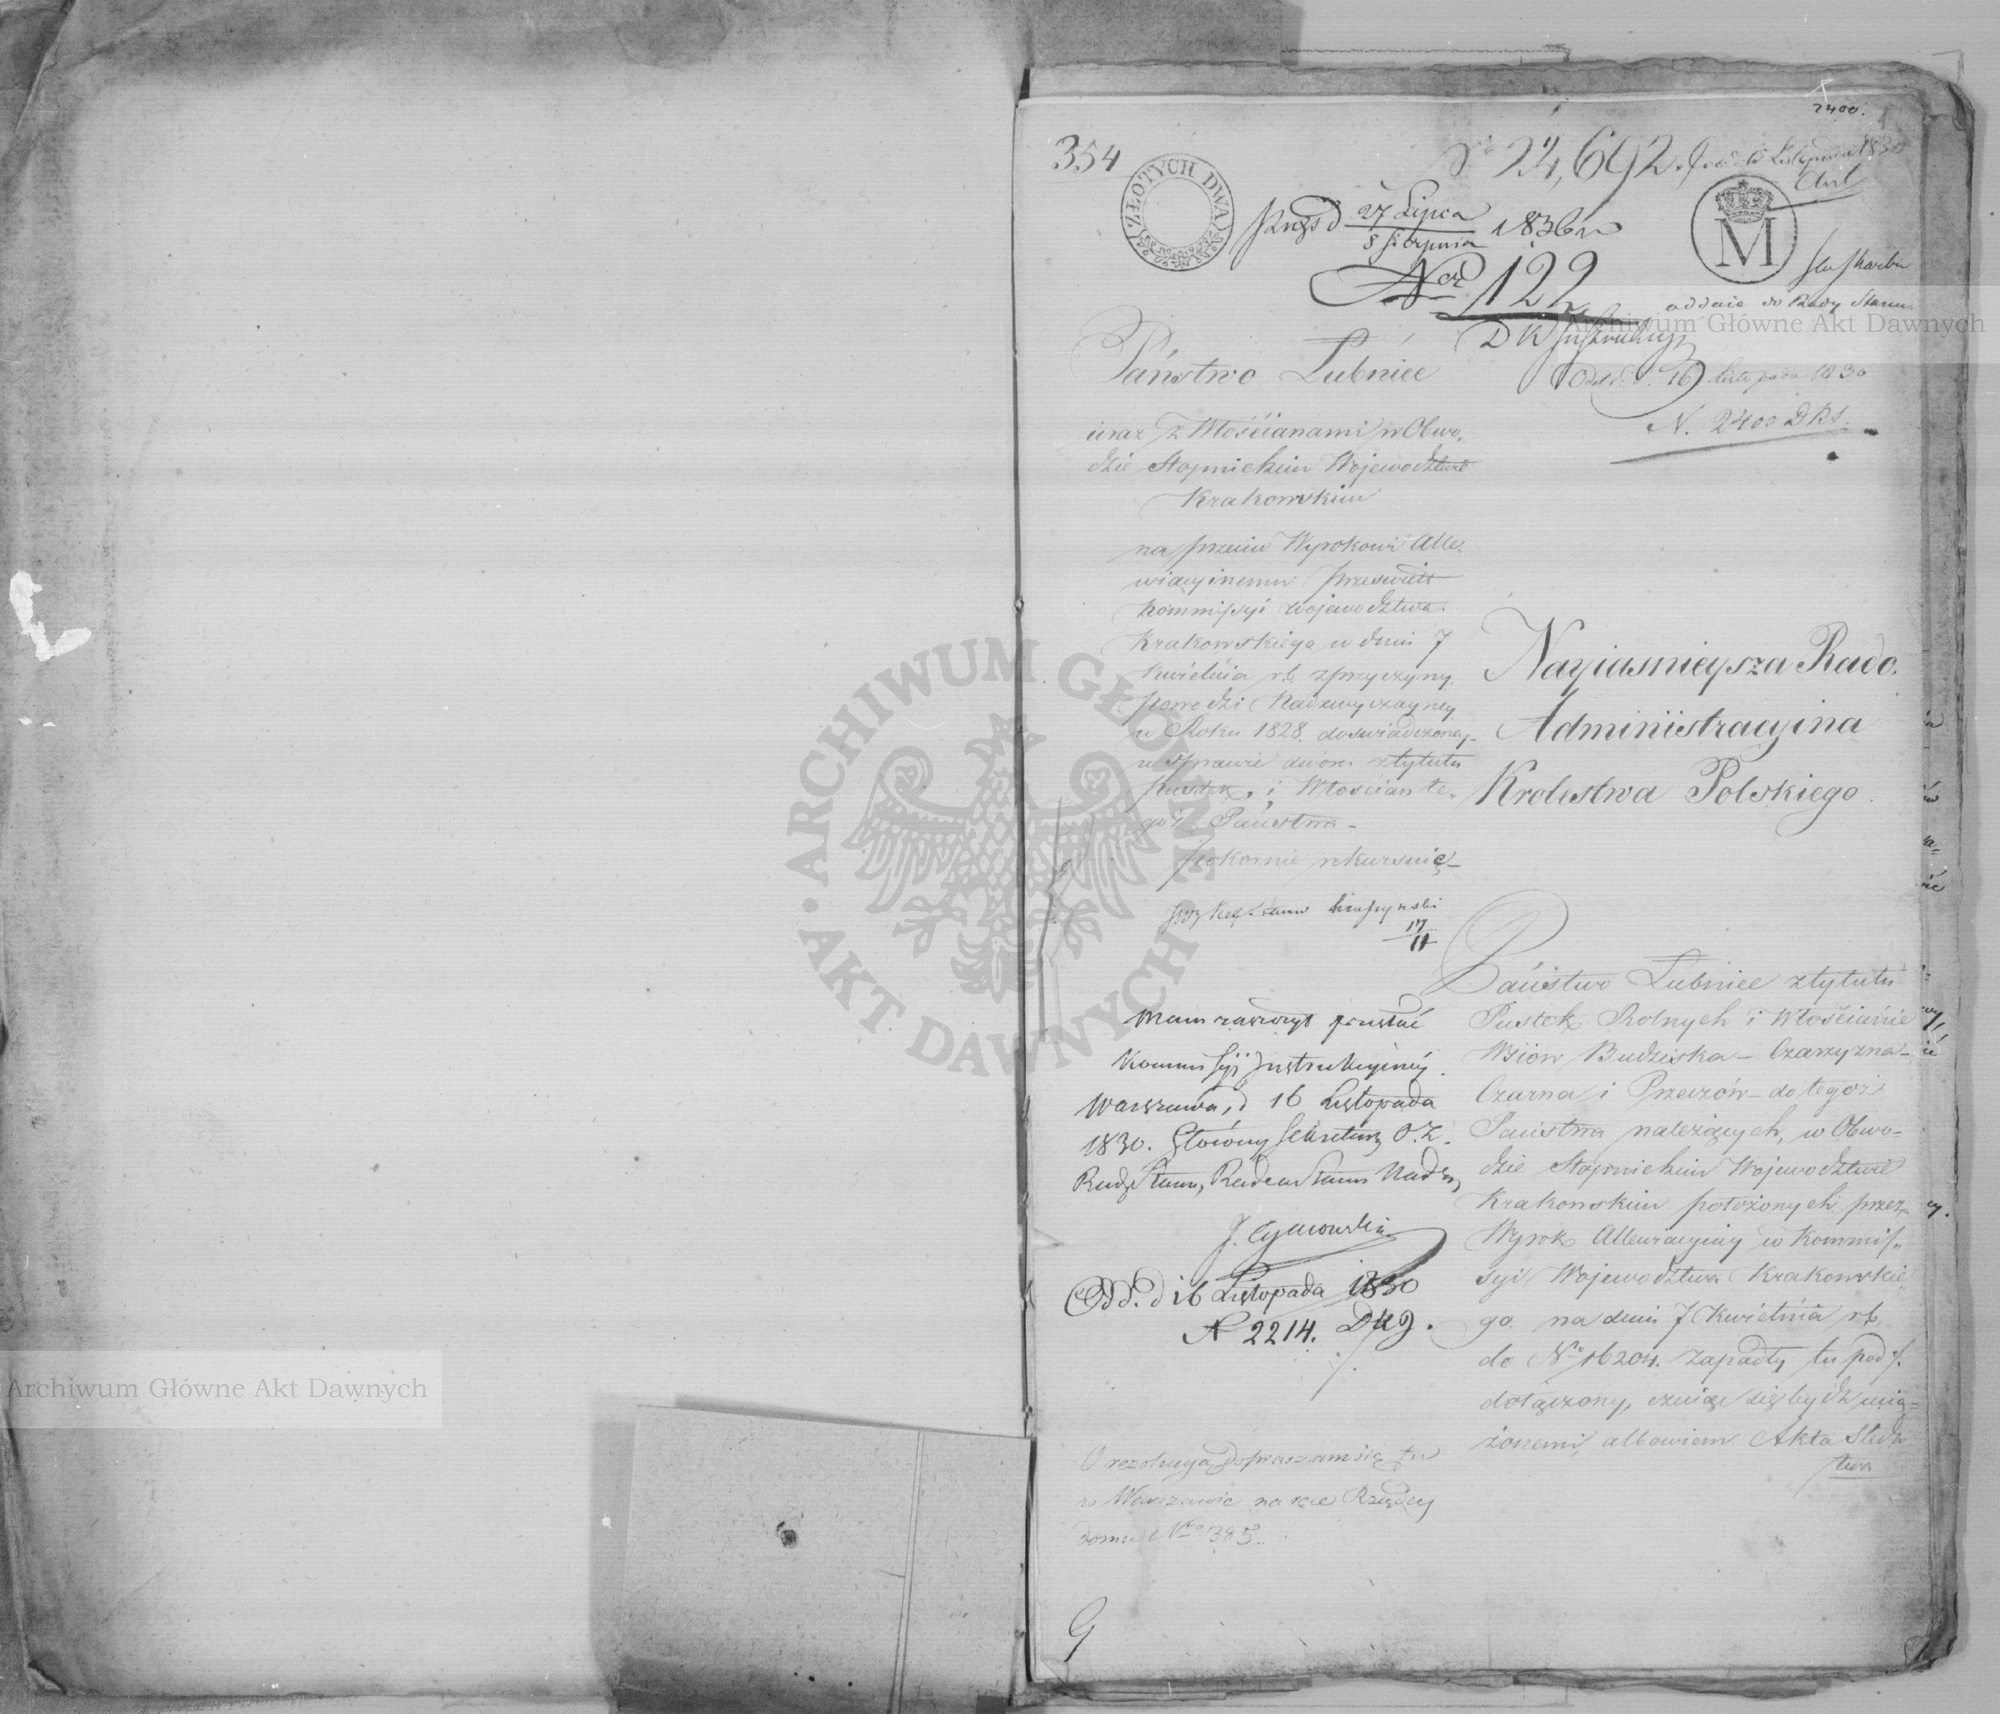 2400.
354
No 24,692.
ZŁOTYCH DWA
M
27 Lipca
8 Sierpnia 1836 r
Nr 122
oddaie do Rady Stanu
Odd. d. 16 Listopada 1830
N. 2400 DKJ.
Państwo Łubnice
wraz z Włościanami w Obwo-
dzie Stopnickim Województwie
Krakowskim
na przeciw Wyrokowi Alle-
wiacyinemu przeświett
Kommissyi Województwa
Krakowskiego w dniu 7
Kwietnia r.b. z przyczyny
Powodzi Nadzwyczayney
w Roku 1828 doświadczoney
w sprawie dworu z tytułu
Pustek, i Włościan te-
goż Państwa -
pokornie rekursuie -
17/11
mam zaszczyt przesłać
Kommissyi Instrukcyiney.
Warszawa, d 16 Listopada
1830. Główny Sekretarz
Rady Stanu, Radca Stanu Nadzw.
Odd. d 16 Listopada 1830
N 2214.
O rezolucyą dopraszam się tu
w Warszawie na ręce Rządcy
domu No 385.
Nayiaśnieysza Rado
Administracyina
Krolestwa Polskiego
Państwo Łubnice z tytułu
Pustek Rolnych i Włościanie
Wsiów Budziska - Czarzyzna -
Czarna i Przeczów - do tegoż
Państwa należących, w Obwo-
dzie Stopnickim Województwie
Krakowskim położonych przez
Wyrok Allewiacyiny w Kommis-
syi Województwa Krakowskie-
go na dniu 7 Kwietnia r.b.
do No 16204. zapadły tu pod ./.
dołączony, czuiąc się bydź ucią-
żonemi, albowiem Akta Śledz
twa
9
Archiwum Główne Akt Dawnych
ARCHIWUM GŁÓWNE AKT DAWNYCH
Archiwum Główne Akt Dawnych